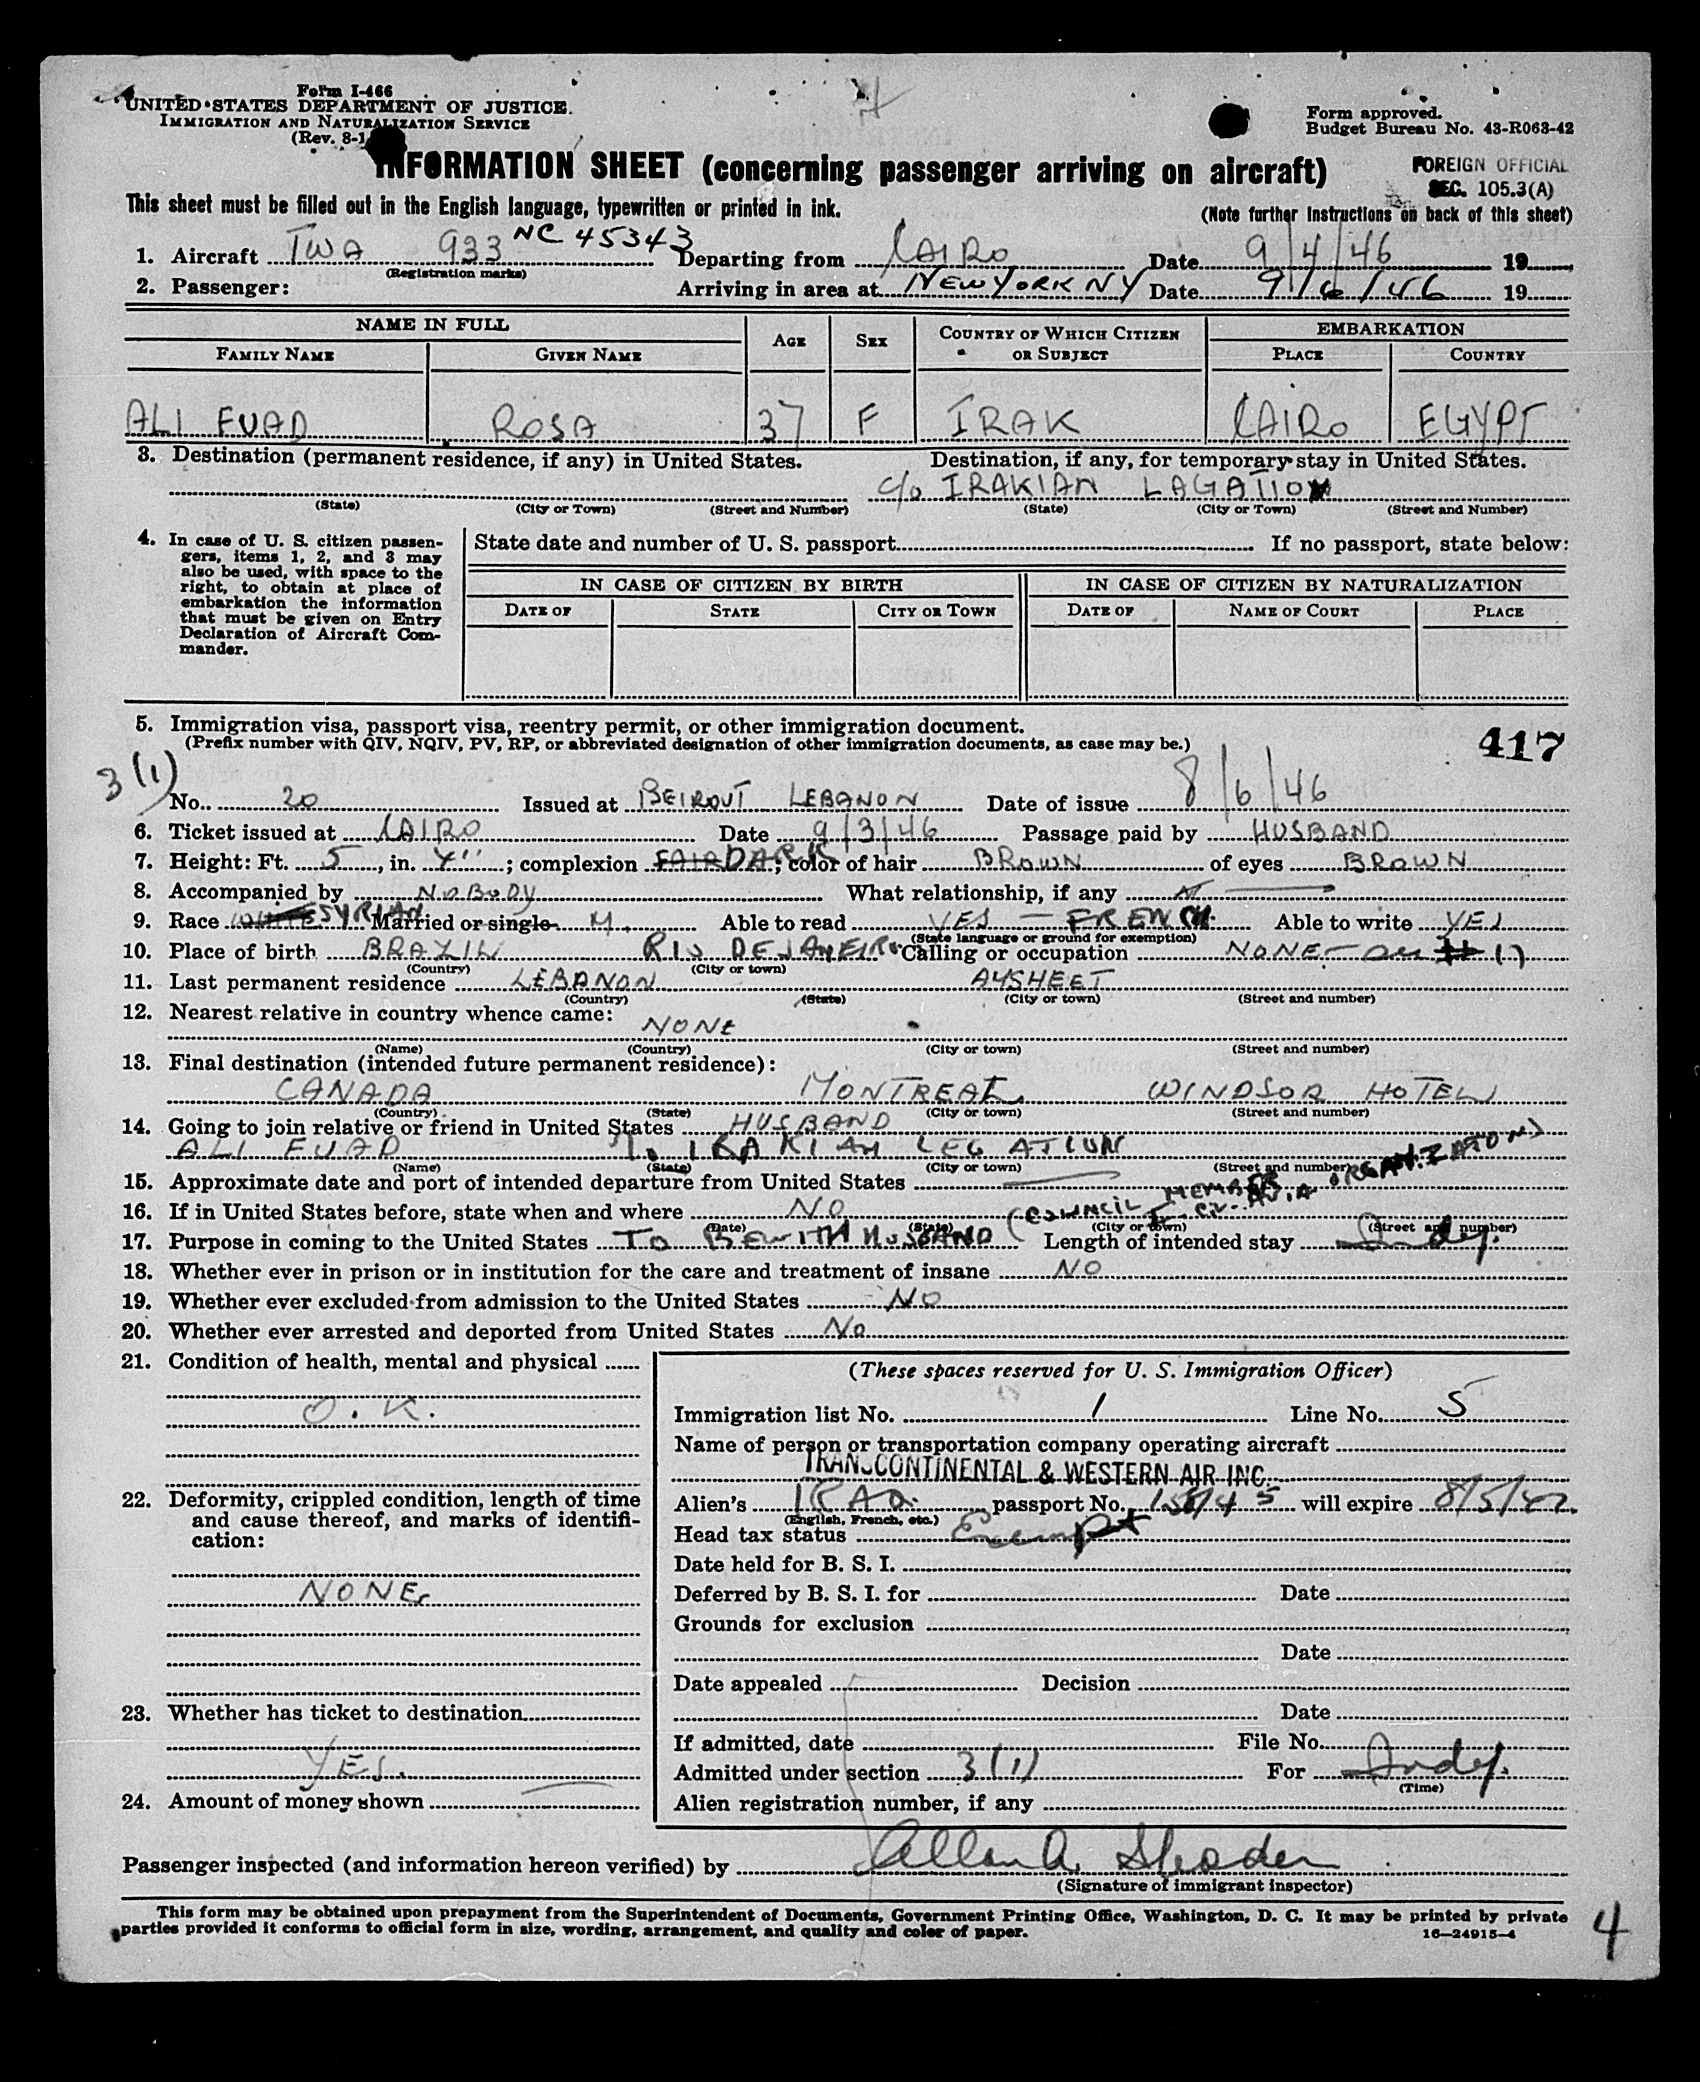 Form I-466
UNITED STATES DEPARTMENT OF JUSTICE
IMMIGRATION AND NATURALIZATION SERVICE
(Rev. 8-1
Form approved.
Budget Bureau No. 43-R063-42
INFORMATION SHEET (concerning passenger arriving on aircraft)
FOREIGN OFFICIAL
SEC. 105.3(A)
This sheet must be filled out in the English language, typewritten or printed in ink.
(Note further instructions on back of this sheet)
1. Aircraft TWA 933 NC 45343 Departing from CAIRO Date 9/4/46 19
(Registration marks)
2. Passenger: Arriving in area at NEW YORK NY Date 9/6/46 19
NAME IN FULL AGE SEX COUNTRY OF WHICH CITIZEN OR SUBJECT EMBARKATION
FAMILY NAME GIVEN NAME PLACE COUNTRY
ALI FUAD ROSA 37 F IRAK CAIRO EGYPT
3. Destination (permanent residence, if any) in United States. Destination, if any, for temporary stay in United States.
c/o IRAKIAN LAGATION
(State) (City or Town) (Street and Number) (State) (City or Town) (Street and Number)
4. In case of U. S. citizen passen-
gers, items 1, 2, and 3 may
also be used, with space to the
right, to obtain at place of
embarkation the information
that must be given on Entry
Declaration of Aircraft Com-
mander.
State date and number of U. S. passport If no passport, state below:
IN CASE OF CITIZEN BY BIRTH IN CASE OF CITIZEN BY NATURALIZATION
DATE OF STATE CITY OR TOWN DATE OF NAME OF COURT PLACE
5. Immigration visa, passport visa, reentry permit, or other immigration document.
(Prefix number with QIV, NQIV, PV, RP, or abbreviated designation of other immigration documents, as case may be.)
417
3(1)
No. 20 Issued at BEIROUT LEBANON Date of issue 8/6/46
6. Ticket issued at CAIRO Date 9/3/46 Passage paid by HUSBAND
7. Height: Ft. 5, in. 4"; complexion FAIR DARK; color of hair BROWN of eyes BROWN
8. Accompanied by NOBODY What relationship, if any
9. Race WHITE SYRIAN Married or single M. Able to read YES - FRENCH Able to write YES
(State language or ground for exemption)
10. Place of birth BRAZIL RIO DE JANEIRO Calling or occupation NONE
(Country) (City or town)
11. Last permanent residence LEBANON AYSHEET
(Country) (State) (City or town) (Street and number)
12. Nearest relative in country whence came:
NONE
(Name) (Country) (City or town) (Street and number)
13. Final destination (intended future permanent residence):
CANADA MONTREAL WINDSOR HOTEL
(Country) (State) (City or town) (Street and number)
14. Going to join relative or friend in United States HUSBAND
ALI FUAD c/o IRAKIAN LEGATION
(Name) (State) (City or town) (Street and number)
15. Approximate date and port of intended departure from United States
16. If in United States before, state when and where NO
(COUNCIL MEMBER AVIA ORGANIZATION)
(Date) (State) (City or town) (Street and number)
17. Purpose in coming to the United States TO BE WITH HUSBAND Length of intended stay Indef.
18. Whether ever in prison or in institution for the care and treatment of insane NO
19. Whether ever excluded from admission to the United States NO
20. Whether ever arrested and deported from United States NO
21. Condition of health, mental and physical
O.K.
22. Deformity, crippled condition, length of time
and cause thereof, and marks of identifi-
cation:
NONE
23. Whether has ticket to destination
YES.
24. Amount of money shown
(These spaces reserved for U. S. Immigration Officer)
Immigration list No. 1 Line No. 5
Name of person or transportation company operating aircraft
TRANSCONTINENTAL & WESTERN AIR INC.
Alien's IRAQ passport No. will expire
(English, French, etc.)
Head tax status Exempt
Date held for B. S. I.
Deferred by B. S. I. for Date
Grounds for exclusion
Date
Date appealed Decision
Date
If admitted, date File No.
Admitted under section 3(1) For Indef.
(Time)
Alien registration number, if any
Passenger inspected (and information hereon verified) by Allan A.
(Signature of immigrant inspector)
This form may be obtained upon prepayment from the Superintendent of Documents, Government Printing Office, Washington, D. C. It may be printed by private
parties provided it conforms to official form in size, wording, arrangement, and quality and color of paper.
16—24915-4
4